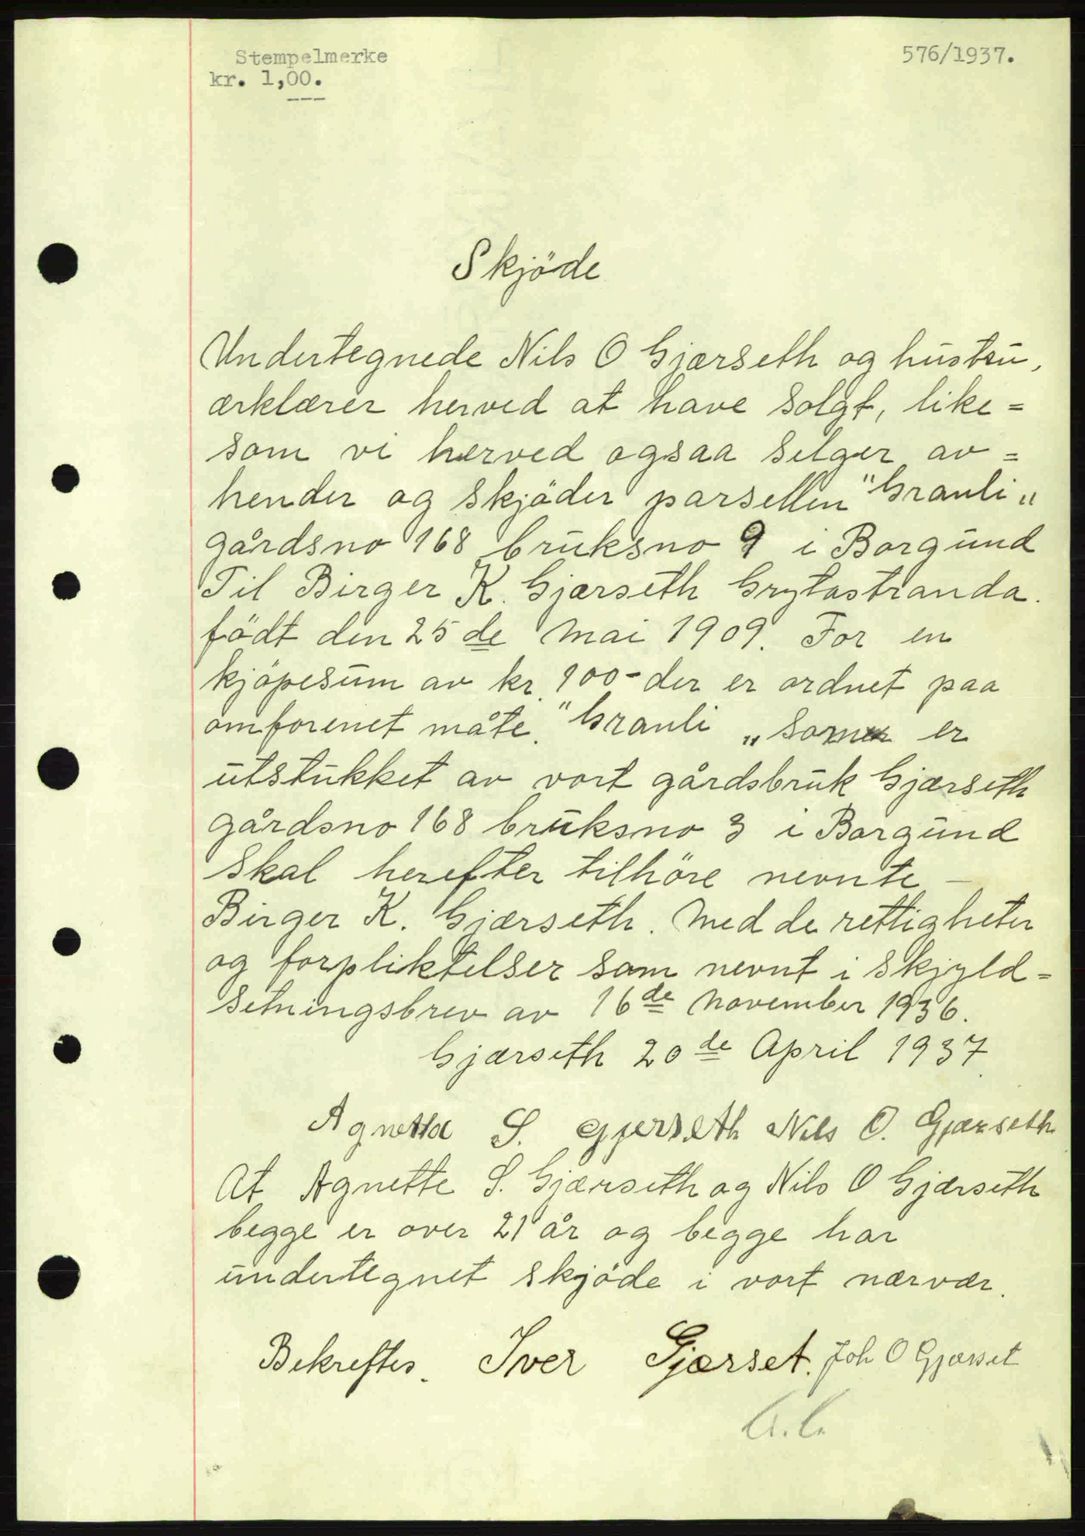 Stempelmerke
kr. 1,00.
576/1937.
Skjöde
Undertegnede Nils O Gjærseth og hustru,
ærklærer herved at have solgt, like=
som vi herved ogsaa selger av=
hender og skjöder parsellen "Granli"
gårdsno 168 bruksno 9 i Borgund
Til Birger K. Gjærseth Grytastranda.
födt den 25de Mai 1909. For en
kjöpesum av kr. 100- der er ordnet paa
omforenet måte. "Granli" som er
utstukket av vort gårdsbruk Gjærseth
gårdsno 168 bruksno 3 i Borgund
skal herefter tilhöre nevnte -
Birger K. Gjærseth. Med de rettigheter
og forpliktelser som nevnt i skjyld=
setningsbrev av 16de November 1936.
Gjærseth 20de April 1937.
Agnetta S. Gjerseth Nils O. Gjærseth
At Agnette S. Gjærseth og Nils O Gjærseth
begge er over 21 år og begge har
undertegnet skjöde i vort nærvær.
Bekreftes. Iver Gjærset. Joh O Gjærset